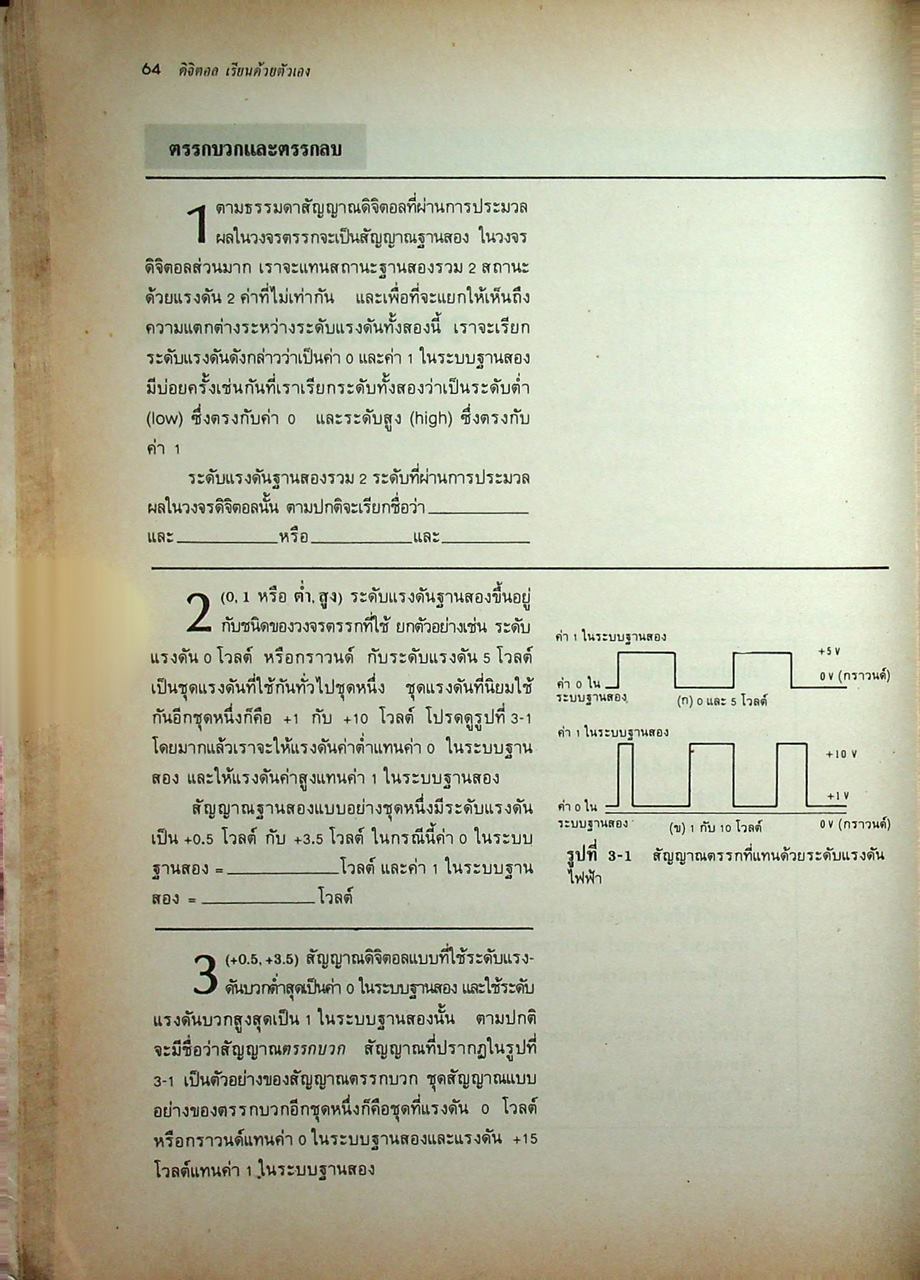 64 ดิจิตอล เรียนด้วยตัวเอง
ตรรกบวกและตรรกลบ
1 ตามธรรมดาสัญญาณดิจิตอลที่ผ่านการประมวล
ผลในวงจรตรรกจะเป็นสัญญาณฐานสอง ในวงจร
ดิจิตอลส่วนมาก เราจะแทนสถานะฐานสองรวม 2 สถานะ
ด้วยแรงดัน 2 ค่าที่ไม่เท่ากัน และเพื่อที่จะแยกให้เห็นถึง
ความแตกต่างระหว่างระดับแรงดันทั้งสองนี้ เราจะเรียก
ระดับแรงดันดังกล่าวว่าเป็นค่า 0 และค่า 1 ในระบบฐานสอง
มีบ่อยครั้งเช่นกันที่เราเรียกระดับทั้งสองว่าเป็นระดับต่ำ
(low) ซึ่งตรงกับค่า 0 และระดับสูง (high) ซึ่งตรงกับ
ค่า 1
ระดับแรงดันฐานสองรวม 2 ระดับที่ผ่านการประมวล
ผลในวงจรดิจิตอลนั้น ตามปกติจะเรียกชื่อว่า __________
และ __________ หรือ __________ และ __________
2 (0, 1 หรือ ต่ำ, สูง) ระดับแรงดันฐานสองขึ้นอยู่
กับชนิดของวงจรตรรกที่ใช้ ยกตัวอย่างเช่น ระดับ
แรงดัน 0 โวลต์ หรือกราวนด์ กับระดับแรงดัน 5 โวลต์
เป็นชุดแรงดันที่ใช้กันทั่วไปชุดหนึ่ง ชุดแรงดันที่นิยมใช้
กันอีกชุดหนึ่งก็คือ +1 กับ +10 โวลต์ โปรดดูรูปที่ 3-1
โดยมากแล้วเราจะให้แรงดันค่าต่ำแทนค่า 0 ในระบบฐาน
สอง และให้แรงดันค่าสูงแทนค่า 1 ในระบบฐานสอง
สัญญาณฐานสองแบบอย่างชุดหนึ่งมีระดับแรงดัน
เป็น +0.5 โวลต์ กับ +3.5 โวลต์ ในกรณีนี้ค่า 0 ในระบบ
ฐานสอง = __________ โวลต์ และค่า 1 ในระบบฐาน
สอง = __________ โวลต์
ค่า 1 ในระบบฐานสอง
+5 V
ค่า 0 ใน
ระบบฐานสอง
0 V (กราวนด์)
(ก) 0 และ 5 โวลต์
ค่า 1 ในระบบฐานสอง
+10 V
ค่า 0 ใน
ระบบฐานสอง
+1 V
(ข) 1 กับ 10 โวลต์
0 V (กราวนด์)
รูปที่ 3-1 สัญญาณตรรกที่แทนด้วยระดับแรงดัน
ไฟฟ้า
3 (+0.5, +3.5) สัญญาณดิจิตอลแบบที่ใช้ระดับแรง-
ดันบวกต่ำสุดเป็นค่า 0 ในระบบฐานสอง และใช้ระดับ
แรงดันบวกสูงสุดเป็น 1 ในระบบฐานสองนั้น ตามปกติ
จะมีชื่อว่าสัญญาณตรรกบวก สัญญาณที่ปรากฏในรูปที่
3-1 เป็นตัวอย่างของสัญญาณตรรกบวก ชุดสัญญาณแบบ
อย่างของตรรกบวกอีกชุดหนึ่งก็คือชุดที่แรงดัน 0 โวลต์
หรือกราวนด์แทนค่า 0 ในระบบฐานสองและแรงดัน +15
โวลต์แทนค่า 1 ในระบบฐานสอง